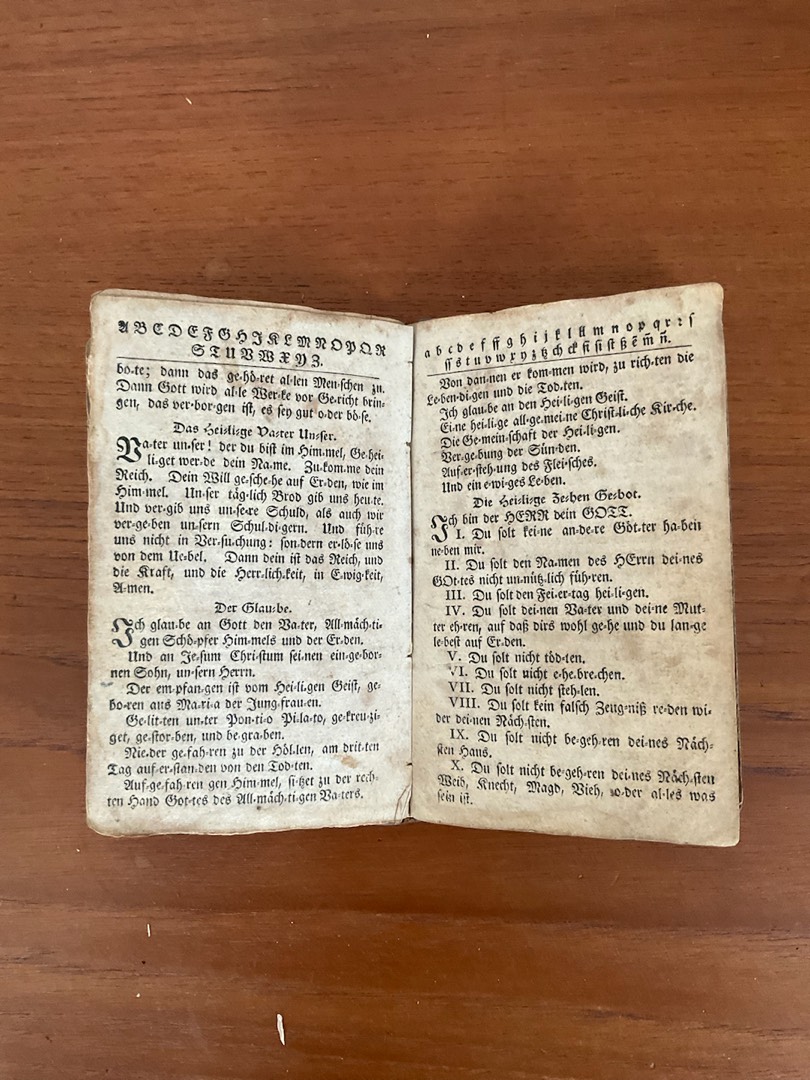 A B C D E F G H J K L M N O P Q R
S T U V W X Y Z.
bo-te; dann das ge-hö-ret al-len Men-schen zu.
Dann Gott wird al-le Wer-ke vor Ge-richt brin-
gen, das ver-bor-gen ist, es sey gut o-der bö-se.
Das Hei-li-ge Va-ter Un-ser.
Va-ter un-ser! der du bist im Him-mel, Ge-hei-
li-get wer-de dein Na-me. Zu-kom-me dein
Reich. Dein Will ge-sche-he auf Er-den, wie im
Him-mel. Un-ser täg-lich Brod gib uns heu-te.
Und ver-gib uns un-se-re Schuld, als auch wir
ver-ge-ben un-sern Schul-di-gern. Und füh-re
uns nicht in Ver-su-chung: son-dern er-lö-se uns
von dem Ue-bel. Dann dein ist das Reich, und
die Kraft, und die Herr-lich-keit, in E-wig-keit,
A-men.
Der Glau-be.
Ich glau-be an Gott den Va-ter, All-mäch-ti-
gen Schö-pfer Him-mels und der Er-den.
Und an Je-sum Chri-stum sei-nen ein-ge-bor-
nen Sohn, un-sern Herrn.
Der em-pfan-gen ist vom Hei-li-gen Geist, ge-
bo-ren aus Ma-ri-a der Jung-frau-en.
Ge-lit-ten un-ter Pon-ti-o Pi-la-to, ge-kreu-zi-
get, ge-stor-ben, und be-gra-ben.
Nie-der ge-fah-ren zu der Höl-len, am drit-ten
Tag auf-er-stan-den von den Tod-ten.
Auf-ge-fah-ren gen Him-mel, si-tzet zu der rech-
ten Hand Got-tes des All-mäch-ti-gen Va-ters.
a b c d e f ff g h i j k l ll m n o p q r ꝛ ſ
ſſ s t u v w x y z tz ch ck fi ſi ſt ß ẽ m̃ ñ.
Von dan-nen er kom-men wird, zu rich-ten die
Le-ben-di-gen und die Tod-ten.
Ich glau-be an den Hei-li-gen Geist.
Ei-ne hei-li-ge all-ge-mei-ne Christ-li-che Kir-che.
Die Ge-mein-schaft der Hei-li-gen.
Ver-ge-bung der Sün-den.
Auf-er-steh-ung des Flei-sches.
Und ein e-wi-ges Le-ben.
Die Hei-li-ge Ze-hen Ge-bot.
Ich bin der HERR dein GOTT.
I. Du solt kei-ne an-de-re Göt-ter ha-ben
ne-ben mir.
II. Du solt den Na-men des HErrn dei-nes
GOt-tes nicht un-nütz-lich füh-ren.
III. Du solt den Fei-er-tag hei-li-gen.
IV. Du solt dei-nen Va-ter und dei-ne Mut-
ter eh-ren, auf daß dirs wohl ge-he und du lan-ge
le-best auf Er-den.
V. Du solt nicht töd-ten.
VI. Du solt nicht e-he-bre-chen.
VII. Du solt nicht steh-len.
VIII. Du solt kein falsch Zeug-niß re-den wi-
der dei-nen Näch-sten.
IX. Du solt nicht be-geh-ren dei-nes Näch-
sten Haus.
X. Du solt nicht be-geh-ren dei-nes Näch-sten
Weib, Knecht, Magd, Vieh, o-der al-les was
sein ist.